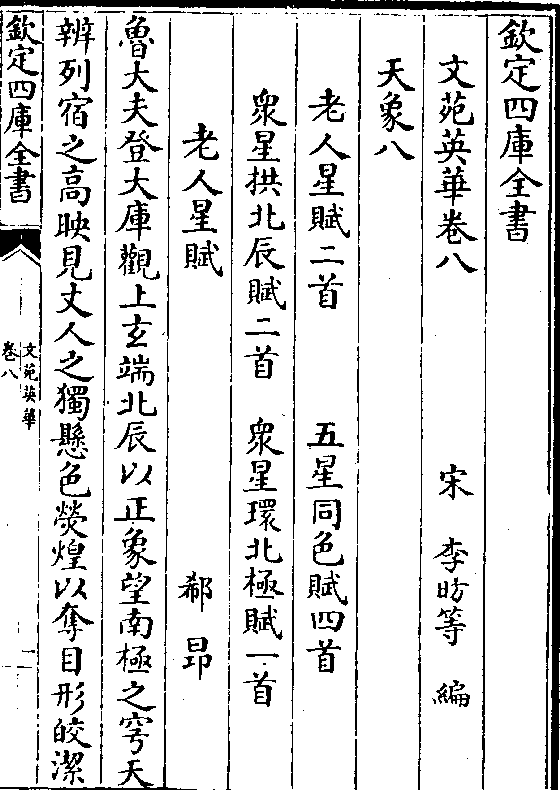 欽定四庫全書
文苑英華卷八 宋 李昉等 編
天象八
老人星賦二首 五星同色賦四首
衆星拱北辰賦二首 衆星環北極賦一首
老人星賦 郗昂
魯大夫登大庫觀上玄端北辰以正象望南極之穹天
辨列宿之高映見丈人之獨懸色熒煌以奪目形皎潔
欽定四庫全書
文苑英華
卷八
一